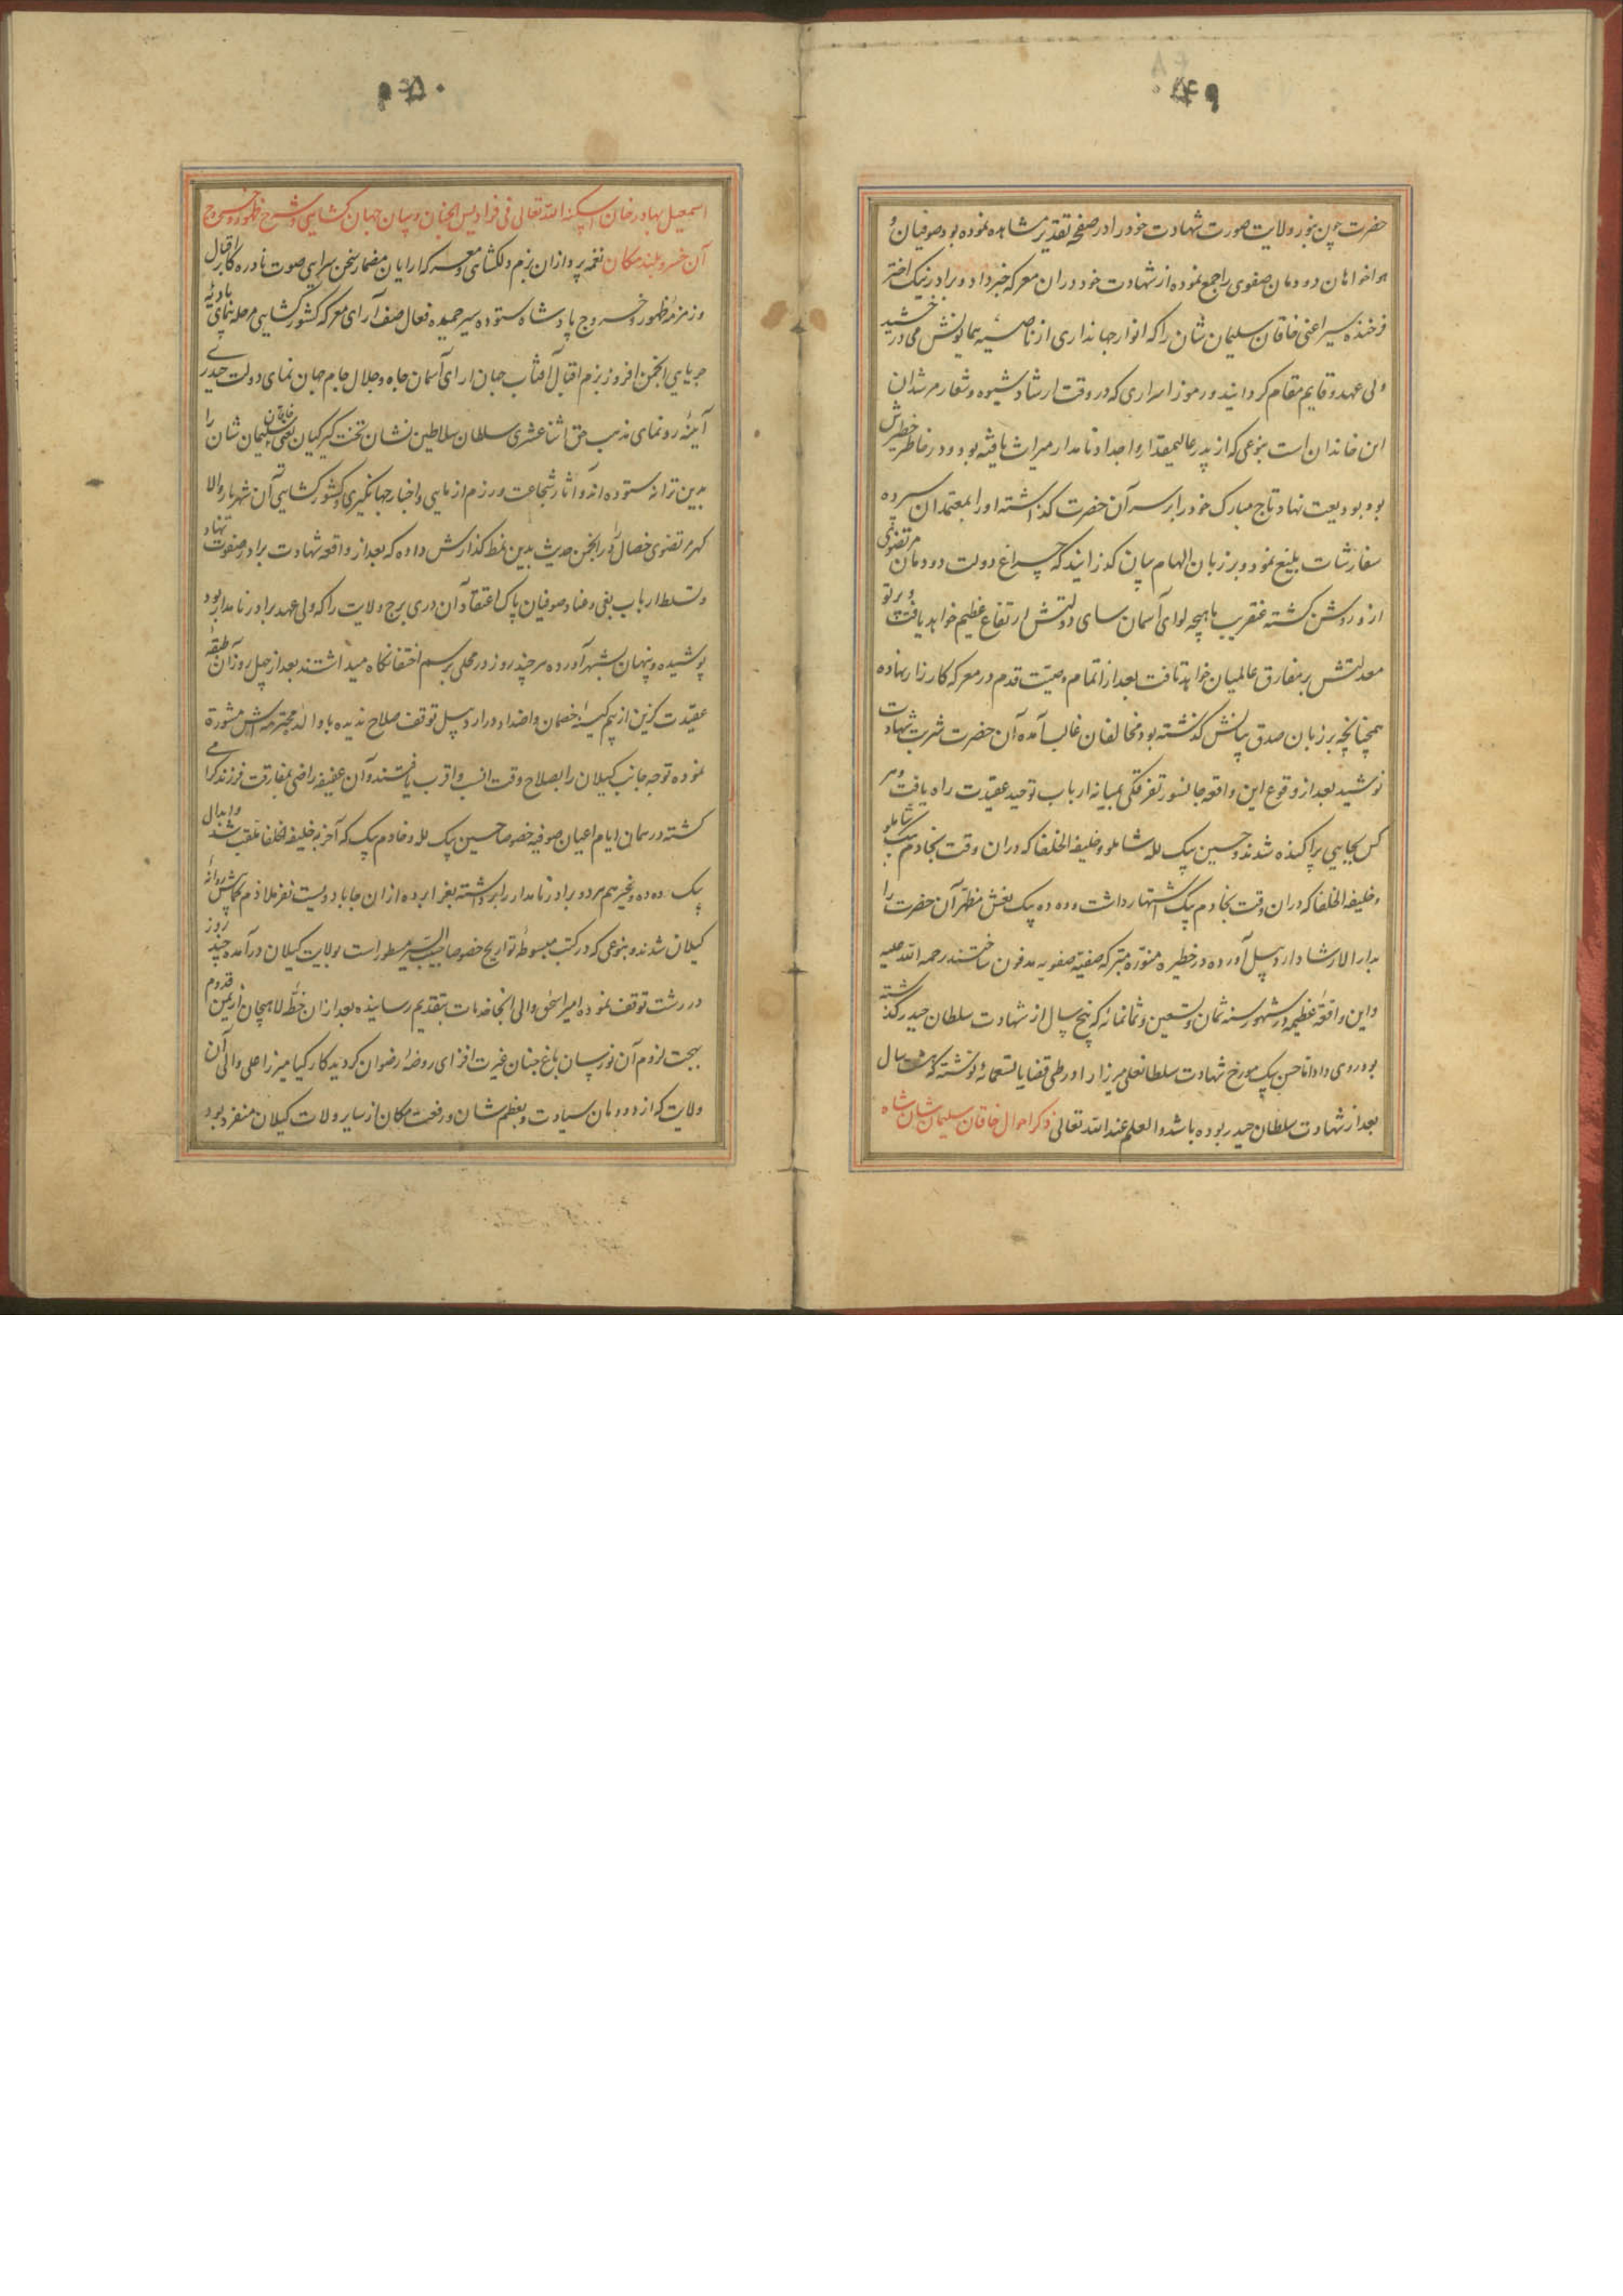 ۴۹
حضرت چون بنور ولایت صورت شهادت خود را در صفحه تقدیر مشاهده نموده بود صوفیان و
هواخواهان دودمان صفوی را جمع نموده از شهادت خود در ان معرکه خبر داد و برادر نیک اختر
فرخنده سیر اعنی خاقان سلیمان شان را که انوار جهانداری از ناصیه همایونش می درخشید
ولی عهد و قایم مقام کردانید و رموز اسراری که در وقت ارشاد شیوه و شعار مرشدان
این خاندان است بنوعی که از پدر عالیمقدار و اجداد نامدار میراث یافته بود و در خاطر خطیرش
بود بودیعت نهاد تاج مبارک خود را بر سر آن حضرت کذاشته او را بمعتمدان سپرده
سفارشات بلیغ نمود و بر زبان الهام بیان کذرانید که چراغ دولت دودمان مرتضوی
از و روشن کشته عنقریب ماهیچه لوای آسمان سای دولتش ارتفاع عظیم خواهد یافت و پرتو
معدلتش بر مفارق عالمیان خواهد تافت بعد از اتمام وصیت قدم در معرکه کارزار نهاده
همچنانچه بر زبان صدق بیانش کذشته بود مخالفان غالب آمده آن حضرت شربت شهادت
نوشید بعد از وقوع این واقعه جانسوز تفرقکی بمیانه ارباب توحید عقیدت راه یافت و هر
کس بجایی پراکنده شدند و حسین بیک لله شاملو و خلیفه الخلفا که دران وقت بخادم بیک شاملو
و خلیفه الخلفا که دران وقت بخادم بیک اشتهار داشت و ده ده بیک نعش مطهر آن حضرت را
بدار الارشاد اردبیل آورده در خطیره منوره متبرکه صفیه صفویه مدفون ساختند رحمه الله علیه
و این واقعه عظیمه در شهور سنه ثمان و تسعین و ثمانمائه که پنج سال از شهادت سلطان حیدر کذشته
بود روی داد اما حسن بیک مورخ شهادت سلطانعلی میرزا را در طی قضایا تسعمائه نوشته که هشت سال
بعد از شهادت سلطان حیدر بوده باشد و العلم عند الله تعالی ذکر احوال خاقان سلیمان شان شاه
۵۰
اسمعیل بهادر خان اسکنه الله تعالی فی فرادیس الجنان و بیان جهان کشایی و شرح ظهور و خروج
آن خسرو بلند مکان نغمه پردازان بزم دلکشای و معرکه ارایان مضمار سخن سرایی صوت نادره کار اقبال
و زمزمه ظهور و خروج پادشاه ستوده سیر حمیده فعال صف آرای معرکه کشور کشایی مرحله پیمای بادیه
جریایی انجمن افروز بزم اقبال آفتاب جهان ارای آسمان جاه و جلال جام جهان نمای دولت حیدری
آینه رونمای مذهب حق اثنا عشری سلطان سلاطین نشان تخت کیر کیان یعنی خاقان سلیمان شان را
بدین ترانه ستوده اند و آثار شجاعت و رزم ازمایی و اخبار جهانکیری و کشور کشایی آن شهریار والا
کهر مرتضوی خصال را در انجمن حدیث بدین نمط کذارش داده که بعد از واقعه شهادت برادر صفوت نهاد
و تسلط ارباب بغی و عناد صوفیان پاک اعتقاد آن دری برج ولایت را که ولی عهد برادر نامدار بود
پوشیده و پنهان بشهر آورده هر چند روز در محلی برسم اختفا نکاه میداشتند بعد از چهل روز آن طبقه
عقیدت کزین از بیم کینه خصمان و اضداد در اردبیل توقف صلاح ندیده با والده محترمه اش مشورة
نموده توجه جانب کیلان را بصلاح وقت انسب و اقرب یافتند و آن عفیفه راضی بمفارقت فرزند کرامی
کشته در همان ایام اعیان صوفیه خصوصا حسین بیک لله و خادم بیک که آخر به خلیفه الخلفا ملقب شد و ابدال
بیک ده ده و غیرهم هر دو برادر نامدار را برداشته بغرا برده از ان جا با دویست نفر ملازم رکابش روانه
کیلان شدند و بنوعی که در کتب مبسوطه تواریخ خصوصا حبیب السیر مسطور است بولایت کیلان درآمده چند روز
در رشت توقف نموده امیر اسحق والی انجا خدمات بتقدیم رسانیده بعد از ان خطه لاهیجان از یمن قدوم
بهجت لزوم آن نورسان باغ جنان غیرت افزای روضه رضوان کردید کار کیا میرزا علی والی آن
ولایت که از دودمان سیادت و بعظم شان و رفعت مکان از سایر ولات کیلان منفرد بود